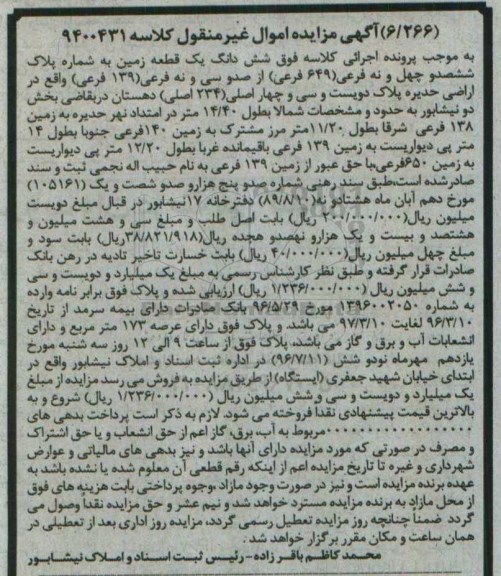 (۶/۲۶۶) آگهی مزایده اموال غیر منقول کلاسه ۹۴۰۰۴۳۱
به موجب پرونده اجرائی کلاسه فوق شش دانگ یک قطعه زمین به شماره پلاک
ششصدو چهل و نه فرعی(۶۴۹ فرعی) از صدو سی و نه فرعی(۱۳۹ فرعی) واقع در
اراضی حدیره پلاک دویست و سی و چهار اصلی(۲۳۴ اصلی) دهستان دربقاضی بخش
دو نیشابور به حدود و مشخصات شمالا بطول ۱۴/۴۰ متر در امتداد نهر حدیره به زمین
۱۳۸ فرعی شرقا بطول ۱۱/۲۰متر مرز مشترک به زمین ۱۴۰فرعی جنوبا بطول ۱۴
متر پی دیواریست به زمین ۱۳۹ فرعی باقیمانده غربا بطول ۱۲/۲۰ متر پی دیواریست
به زمین ۶۵۰فرعی،با حق عبور از زمین ۱۳۹ فرعی به نام حبیب اله نجمی ثبت و سند
صادرشده است،طبق سند رهنی شماره صدو پنج هزارو صدو شصت و یک (۱۰۵۱۶۱)
مورخ دهم آبان ماه هشتادو نه(۸۹/۸/۱۰) دفترخانه ۱۷نیشابور در قبال مبلغ دویست
میلیون ریال(۲۰۰/۰۰۰/۰۰۰ ریال) بابت اصل طلب و مبلغ سی و هشت میلیون و
هشتصد و بیست و یک هزارو نهصدو هجده ریال(۳۸/۸۲۱/۹۱۸ریال) بابت سود و
مبلغ چهل میلیون ریال(۴۰/۰۰۰/۰۰۰ ریال) بابت خسارت تاخیر تادیه در رهن بانک
صادرات قرار گرفته و طبق نظر کارشناس رسمی به مبلغ یک میلیارد و دویست و سی
و شش میلیون ریال (۱/۲۳۶/۰۰۰/۰۰۰ ریال) ارزیابی شده و پلاک فوق برابر نامه وارده
به شماره ۱۳۹۶۰۰۲۰۵۰ مورخ ۹۶/۵/۲۹ بانک صادرات دارای بیمه سرمد از تاریخ
۹۶/۳/۱۰ لغایت ۹۷/۳/۱۰ می باشد. و پلاک فوق دارای عرصه ۱۷۳ متر مربع و دارای
انشعابات آب و برق و گاز می باشد، پلاک فوق از ساعت ۹ الی ۱۲ روز سه شنبه مورخ
یازدهم مهرماه نودو شش (۹۶/۷/۱۱) در اداره ثبت اسناد و املاک نیشابور واقع در
ابتدای خیابان شهید جعفری (ایستگاه) از طریق مزایده به فروش می رسد مزایده از مبلغ
یک میلیارد و دویست و سی و شش میلیون ریال (۱/۲۳۶/۰۰۰/۰۰۰ ریال) شروع و به
بالاترین قیمت پیشنهادی نقدا فروخته می شود. لازم به ذکر است پرداخت بدهی های
مربوط به آب، برق، گاز اعم از حق انشعاب و یا حق اشتراک
و مصرف در صورتی که مورد مزایده دارای آنها باشد و نیز بدهی های مالیاتی و عوارض
شهرداری و غیره تا تاریخ مزایده اعم از اینکه رقم قطعی آن معلوم شده یا نشده باشد به
عهده برنده مزایده است و نیز در صورت وجود مازاد ،وجوه پرداختی بابت هزینه های فوق
از محل مازاد به برنده مزایده مسترد خواهد شد و نیم عشر و حق مزایده نقدا وصول می
گردد ضمناً چنانچه روز مزایده تعطیل رسمی گردد، مزایده روز اداری بعد از تعطیلی در
همان ساعت و مکان مقرر برگزار خواهد شد.
محمد کاظم باقر زاده - رئیس ثبت اسناد و املاک نیشابور